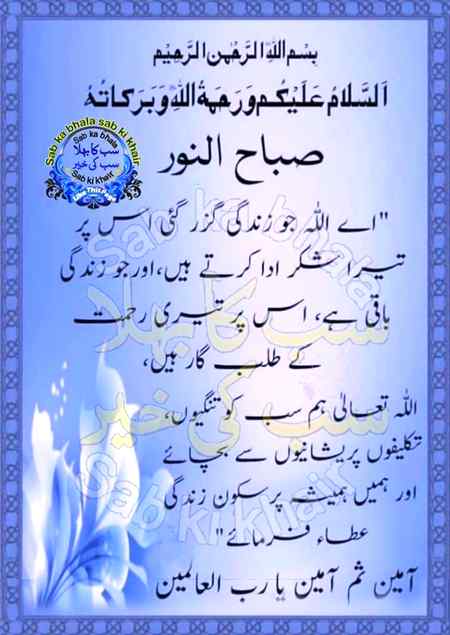 بِسْمِ اللّٰہِ الرَّحْمٰنِ الرَّحِیْمِ
اَلسَّلَامُ عَلَیْکُم وَرَحمَةُ اللّٰهِ وَبَرَکَاتُهُ
صباح النور
Sab ka bhala sab ki khair
Sab ka bhala
سب کا بھلا
سب کی خیر
Sab ki khair
Like This Page
"اے اللہ جو زندگی گزر گئی اس پر
تیرا شکر ادا کرتے ہیں، اور جو زندگی
باقی ہے، اس پر تیری رحمت
کے طلب گار ہیں،
اللہ تعالیٰ ہم سب کو تنگیوں،
تکلیفوں پریشانیوں سے بچائے
اور ہمیں ہمیشہ پرسکون زندگی
عطاء فرمائے"
آمین ثم آمین یا رب العالمین
Sab ka bhala
سب کا بھلا
سب کی خیر
Sab ki khair